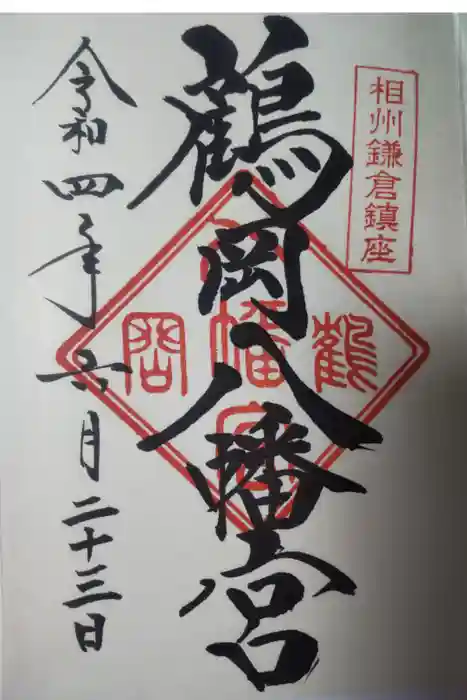 相州鎌倉鎮座
鶴岡八幡宮
令和四年六月二十三日
鶴
八幡宮
岡